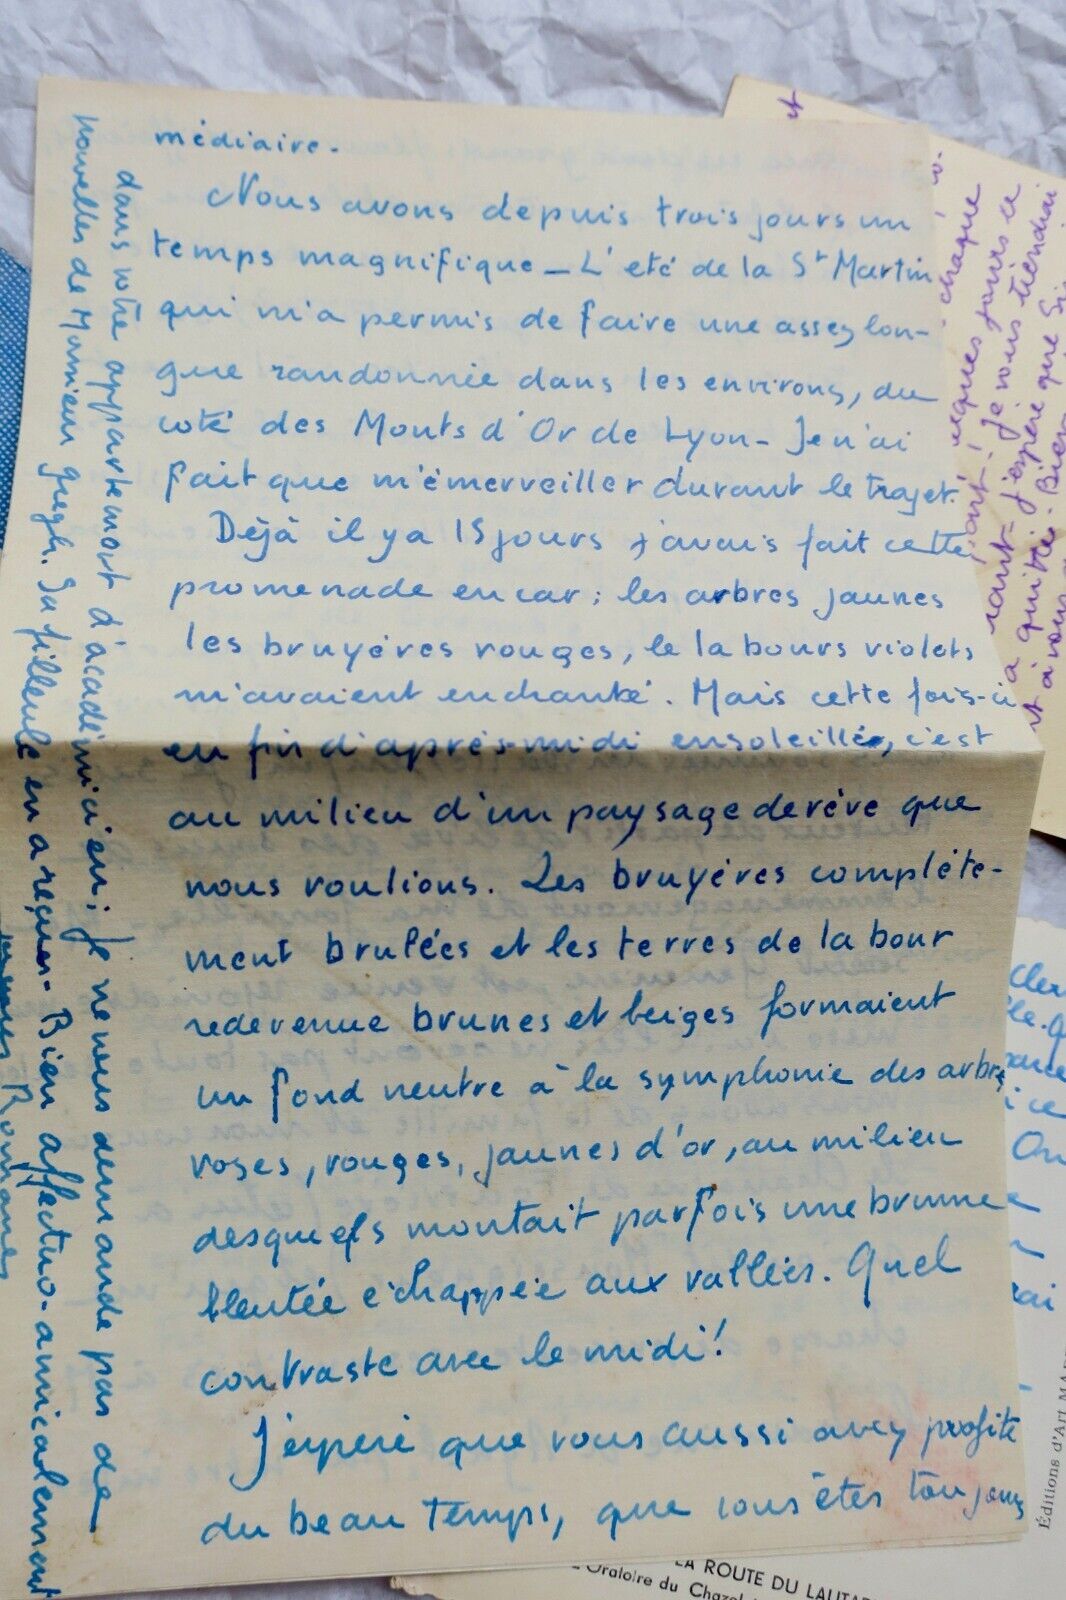 médiaire.
Nous avons depuis trois jours un
temps magnifique — L'eté de la St Martin
qui m'a permis de faire une assez lon-
gue randonnée dans les environs, du
coté des Monts d'Or de Lyon - Je n'ai
fait que m'émerveiller durant le trajet.
Déjà il y a 15 jours j'avais fait cette
promenade en car ; les arbres jaunes
les bruyéres rouges, le labours violets
m'avaient enchanté. Mais cette fois-ci
en fin d'après-midi ensoleillée, c'est
au milieu d'un paysage de rêve que
nous roulions. Les bruyéres complête-
ment brulées et les terres de labour
redevenue brunes et beiges formaient
un fond neutre à la symphonie des arbres
roses, rouges, jaunes d'or, au milieu
desquels montait parfois une brume
bleutée échappée aux vallées. Quel
contraste avec le midi!
J'espere que vous aussi avez profité
du beau temps, que vous êtes toujours
dans votre appartement d'académicien ; je ne vous demande pas de
nouvelles de Monsieur Gregh. Sa filleule en a reçues - Bien affectuo-amicalement
Romanes
chaque
jours
je vous tiendrai
j'espère que
quitté. Bien
à vous
On
Éditions d'Art
LA ROUTE DU LAUTA
L'Oratoire du Chazel